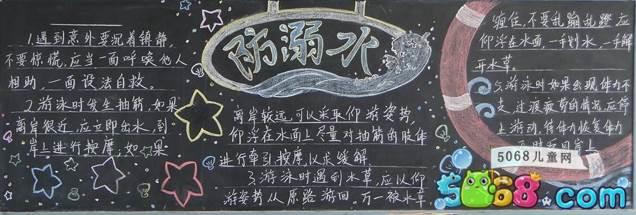 防溺水
1.遇到意外要沉着镇静,
不要惊慌,应当一面呼唤他人
相助,一面设法自救。
2.游泳时发生抽筋,如果
离岸很近,应立即出水,到
岸上进行按摩;如果
离岸较远,可以采取仰游姿势,
仰浮在水面上尽量对抽筋的肢体
进行牵引按摩,以求缓解
3.游泳时遇到水草,应以仰
游姿势从原路游回,万一被水草
缠住,不要乱蹦乱蹬,应
仰浮在水面,一手划水,一手解
开水草
5.游泳时如果出现体力不
支、过度疲劳的情况,应停
上游动,待体力恢复
5068儿童网
5068.com